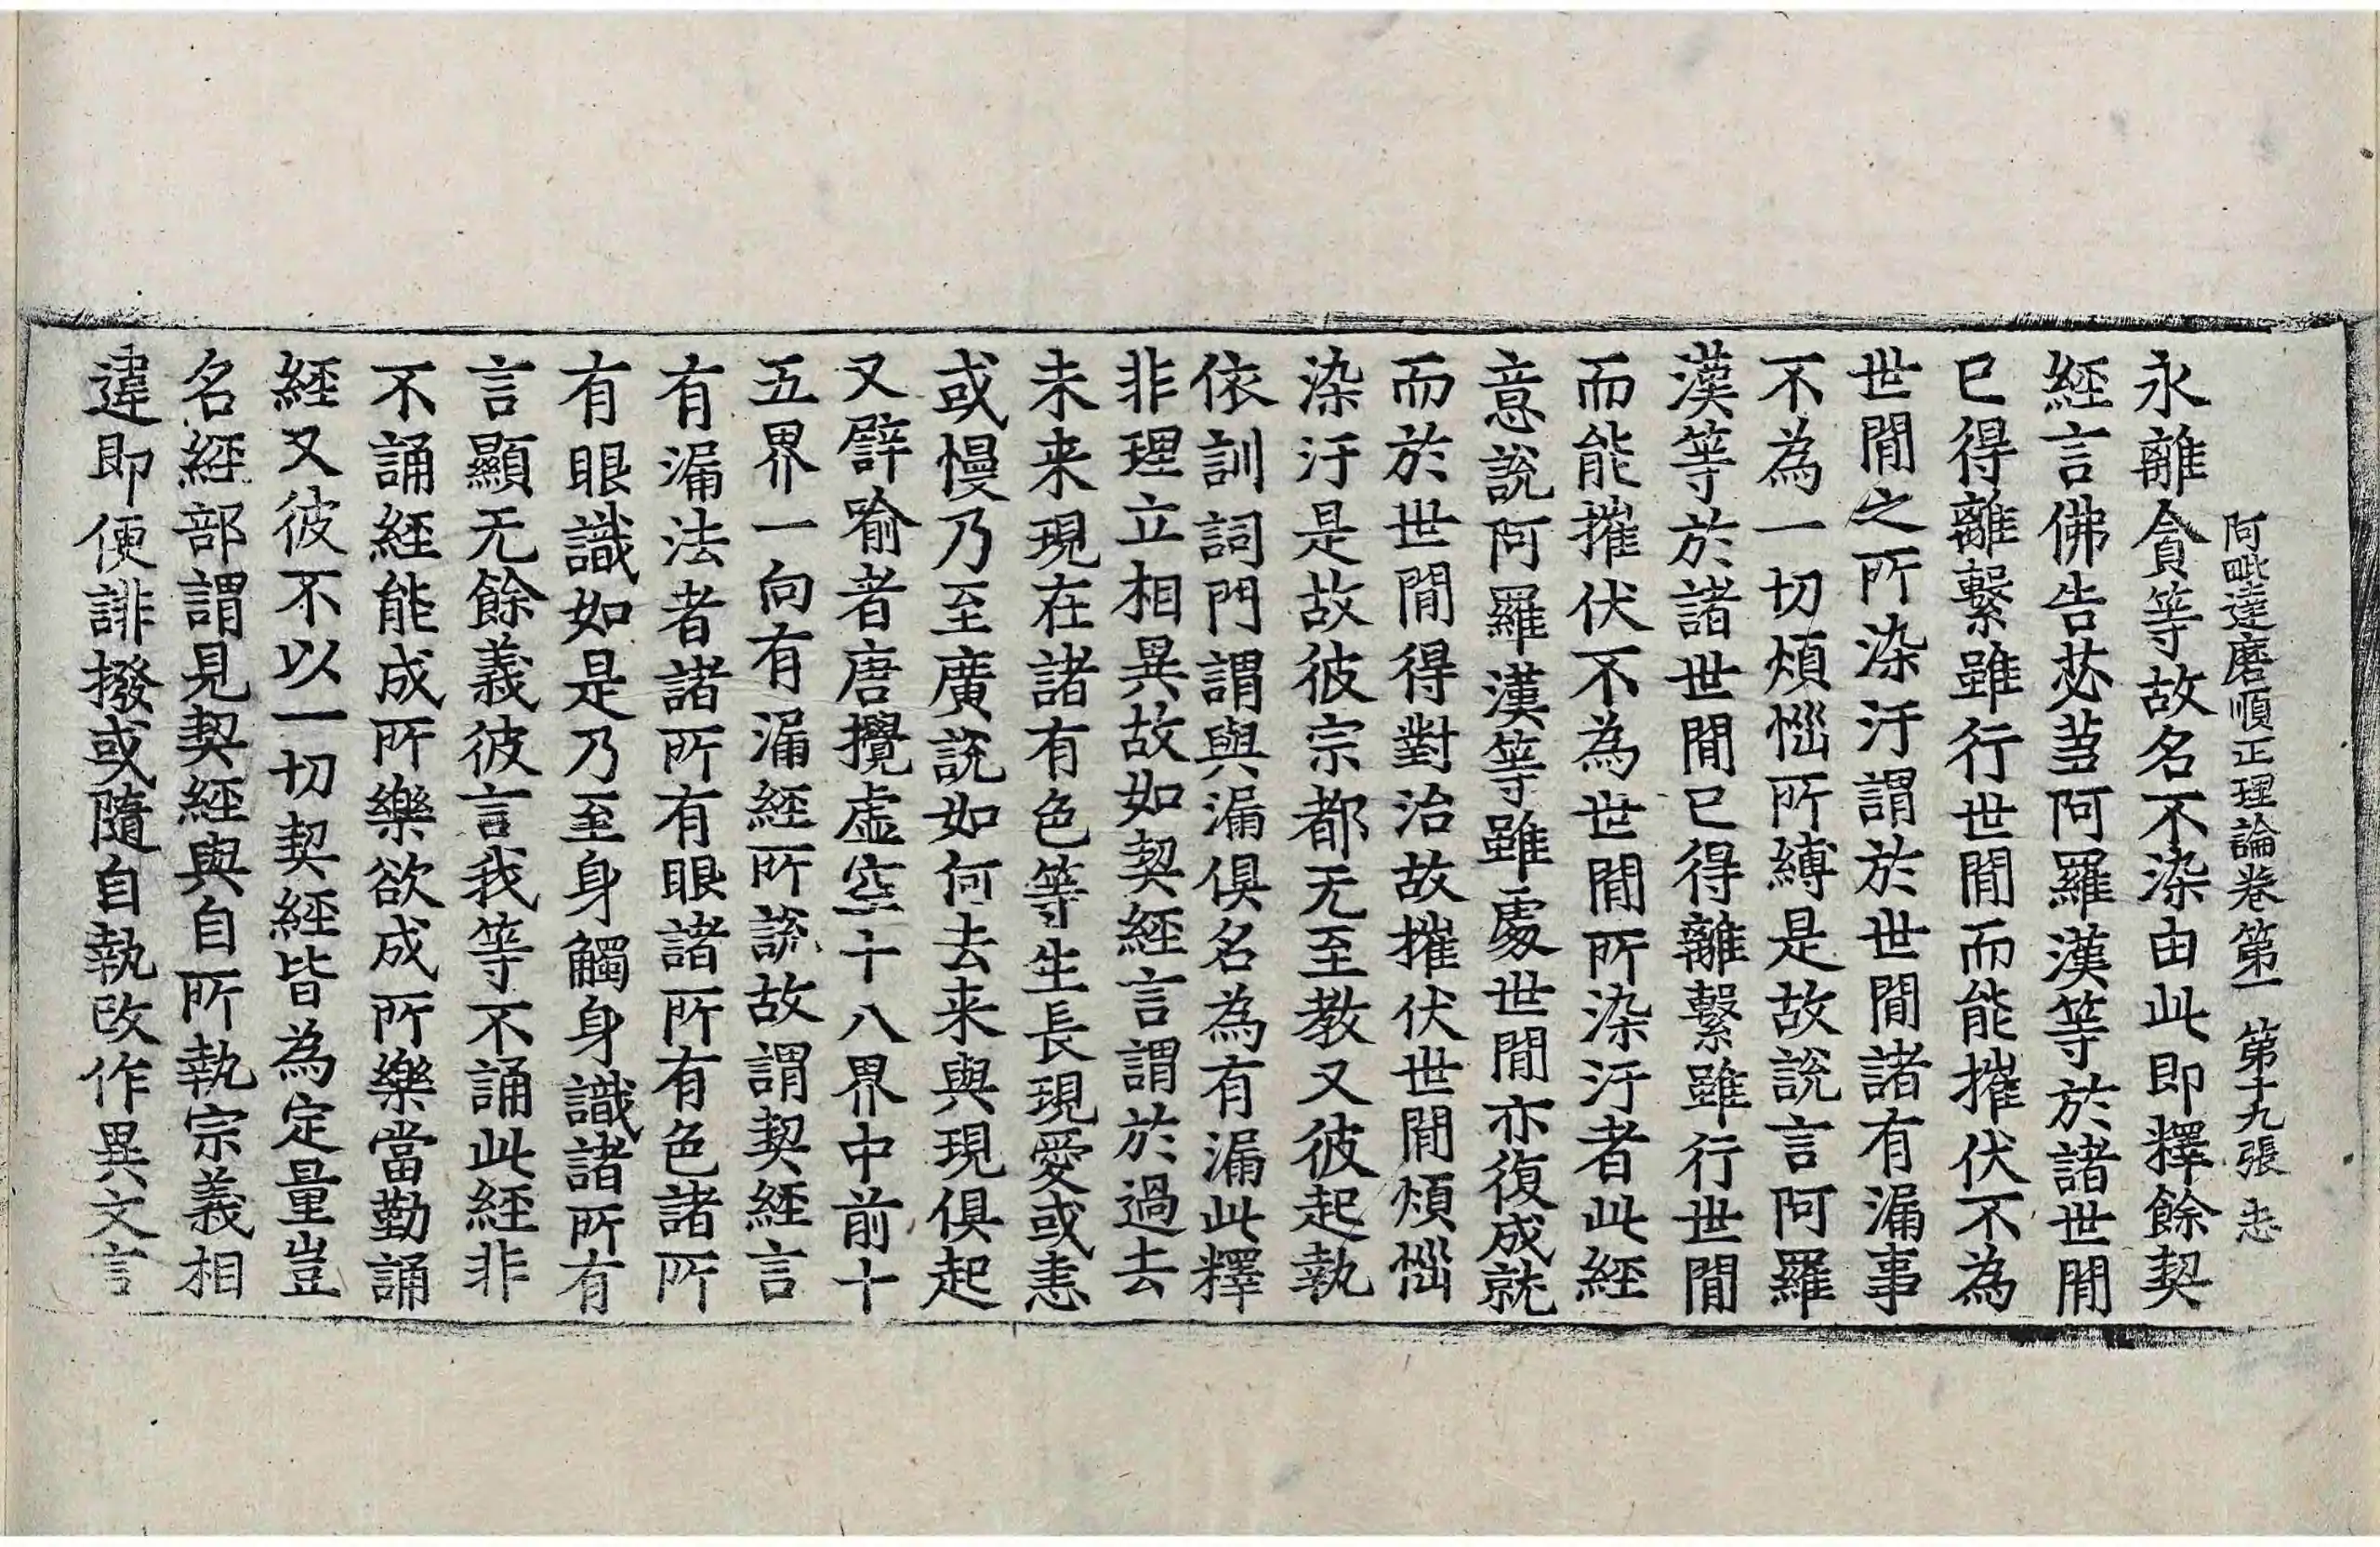 阿毗達磨順正理論卷第一 第十九張 恚
永離貪等故名不染由此即釋餘契
經言佛告苾蒭阿羅漢等於諸世間
已得離繫雖行世間而能摧伏不為
世間之所染汙謂於世間諸有漏事
不為一切煩惱所縛是故說言阿羅
漢等於諸世間已得離繫雖行世間
而能摧伏不為世間所染汙者此經
意說阿羅漢等雖處世間亦復成就
而於世間得對治故摧伏世間煩惱
染汙是故彼宗都无至教又彼起執
依訓詞門謂與漏俱名為有漏此釋
非理立相異故如契經言謂於過去
未来現在諸有色等生長現愛或恚
或慢乃至廣說如何去来與現俱起
又譬喻者唐攪虛空十八界中前十
五界一向有漏經所說故謂契經言
有漏法者諸所有眼諸所有色諸所
有眼識如是乃至身觸身識諸所有
言顯无餘義彼言我等不誦此經非
不誦經能成所樂欲成所樂當勤誦
經又彼不以一切契經皆為定量豈
名經部謂見契經與自所執宗義相
違即便誹撥或隨自執改作異文言